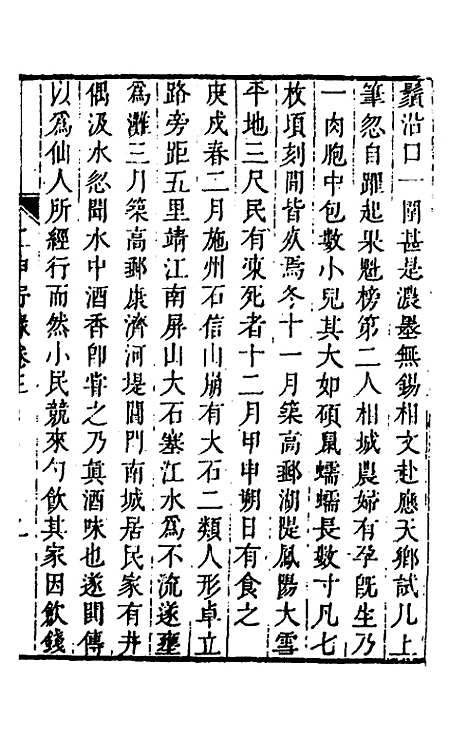 鬚沿口一圍甚是濃墨無錫相文赴應天鄉試几上
筆忽自躍起果魁榜第二人相城農婦有孕旣生乃
一肉胞中包數小兒其大如碩鼠蠕蠕長數寸凡七
枚頃刻間皆歿焉冬十一月築高郵湖隄鳳陽大雪
平地三尺民有凍死者十二月甲申朔日有食之
庚戌春二月施州石信山崩有大石二類人形卓立
路旁距五里靖江南屏山大石塞江水爲不流遂壅
爲灘三月築高郵康濟河堤閶門南城居民家有井
偶汲水忽聞水中酒香卽嘗之乃眞酒味也遂閧傳
以爲仙人所經行而然小民競來勺飮其家因飮錢